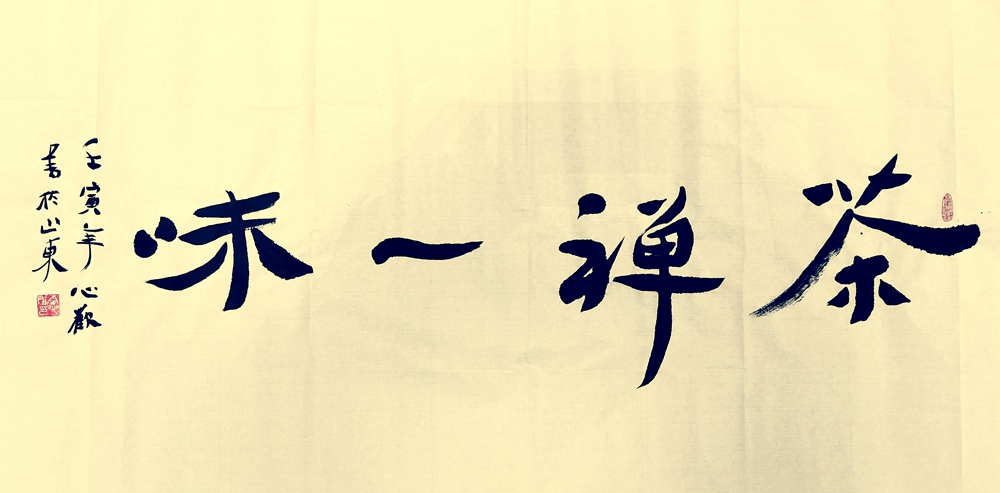 茶禅一味
壬寅年心歡
書於山東